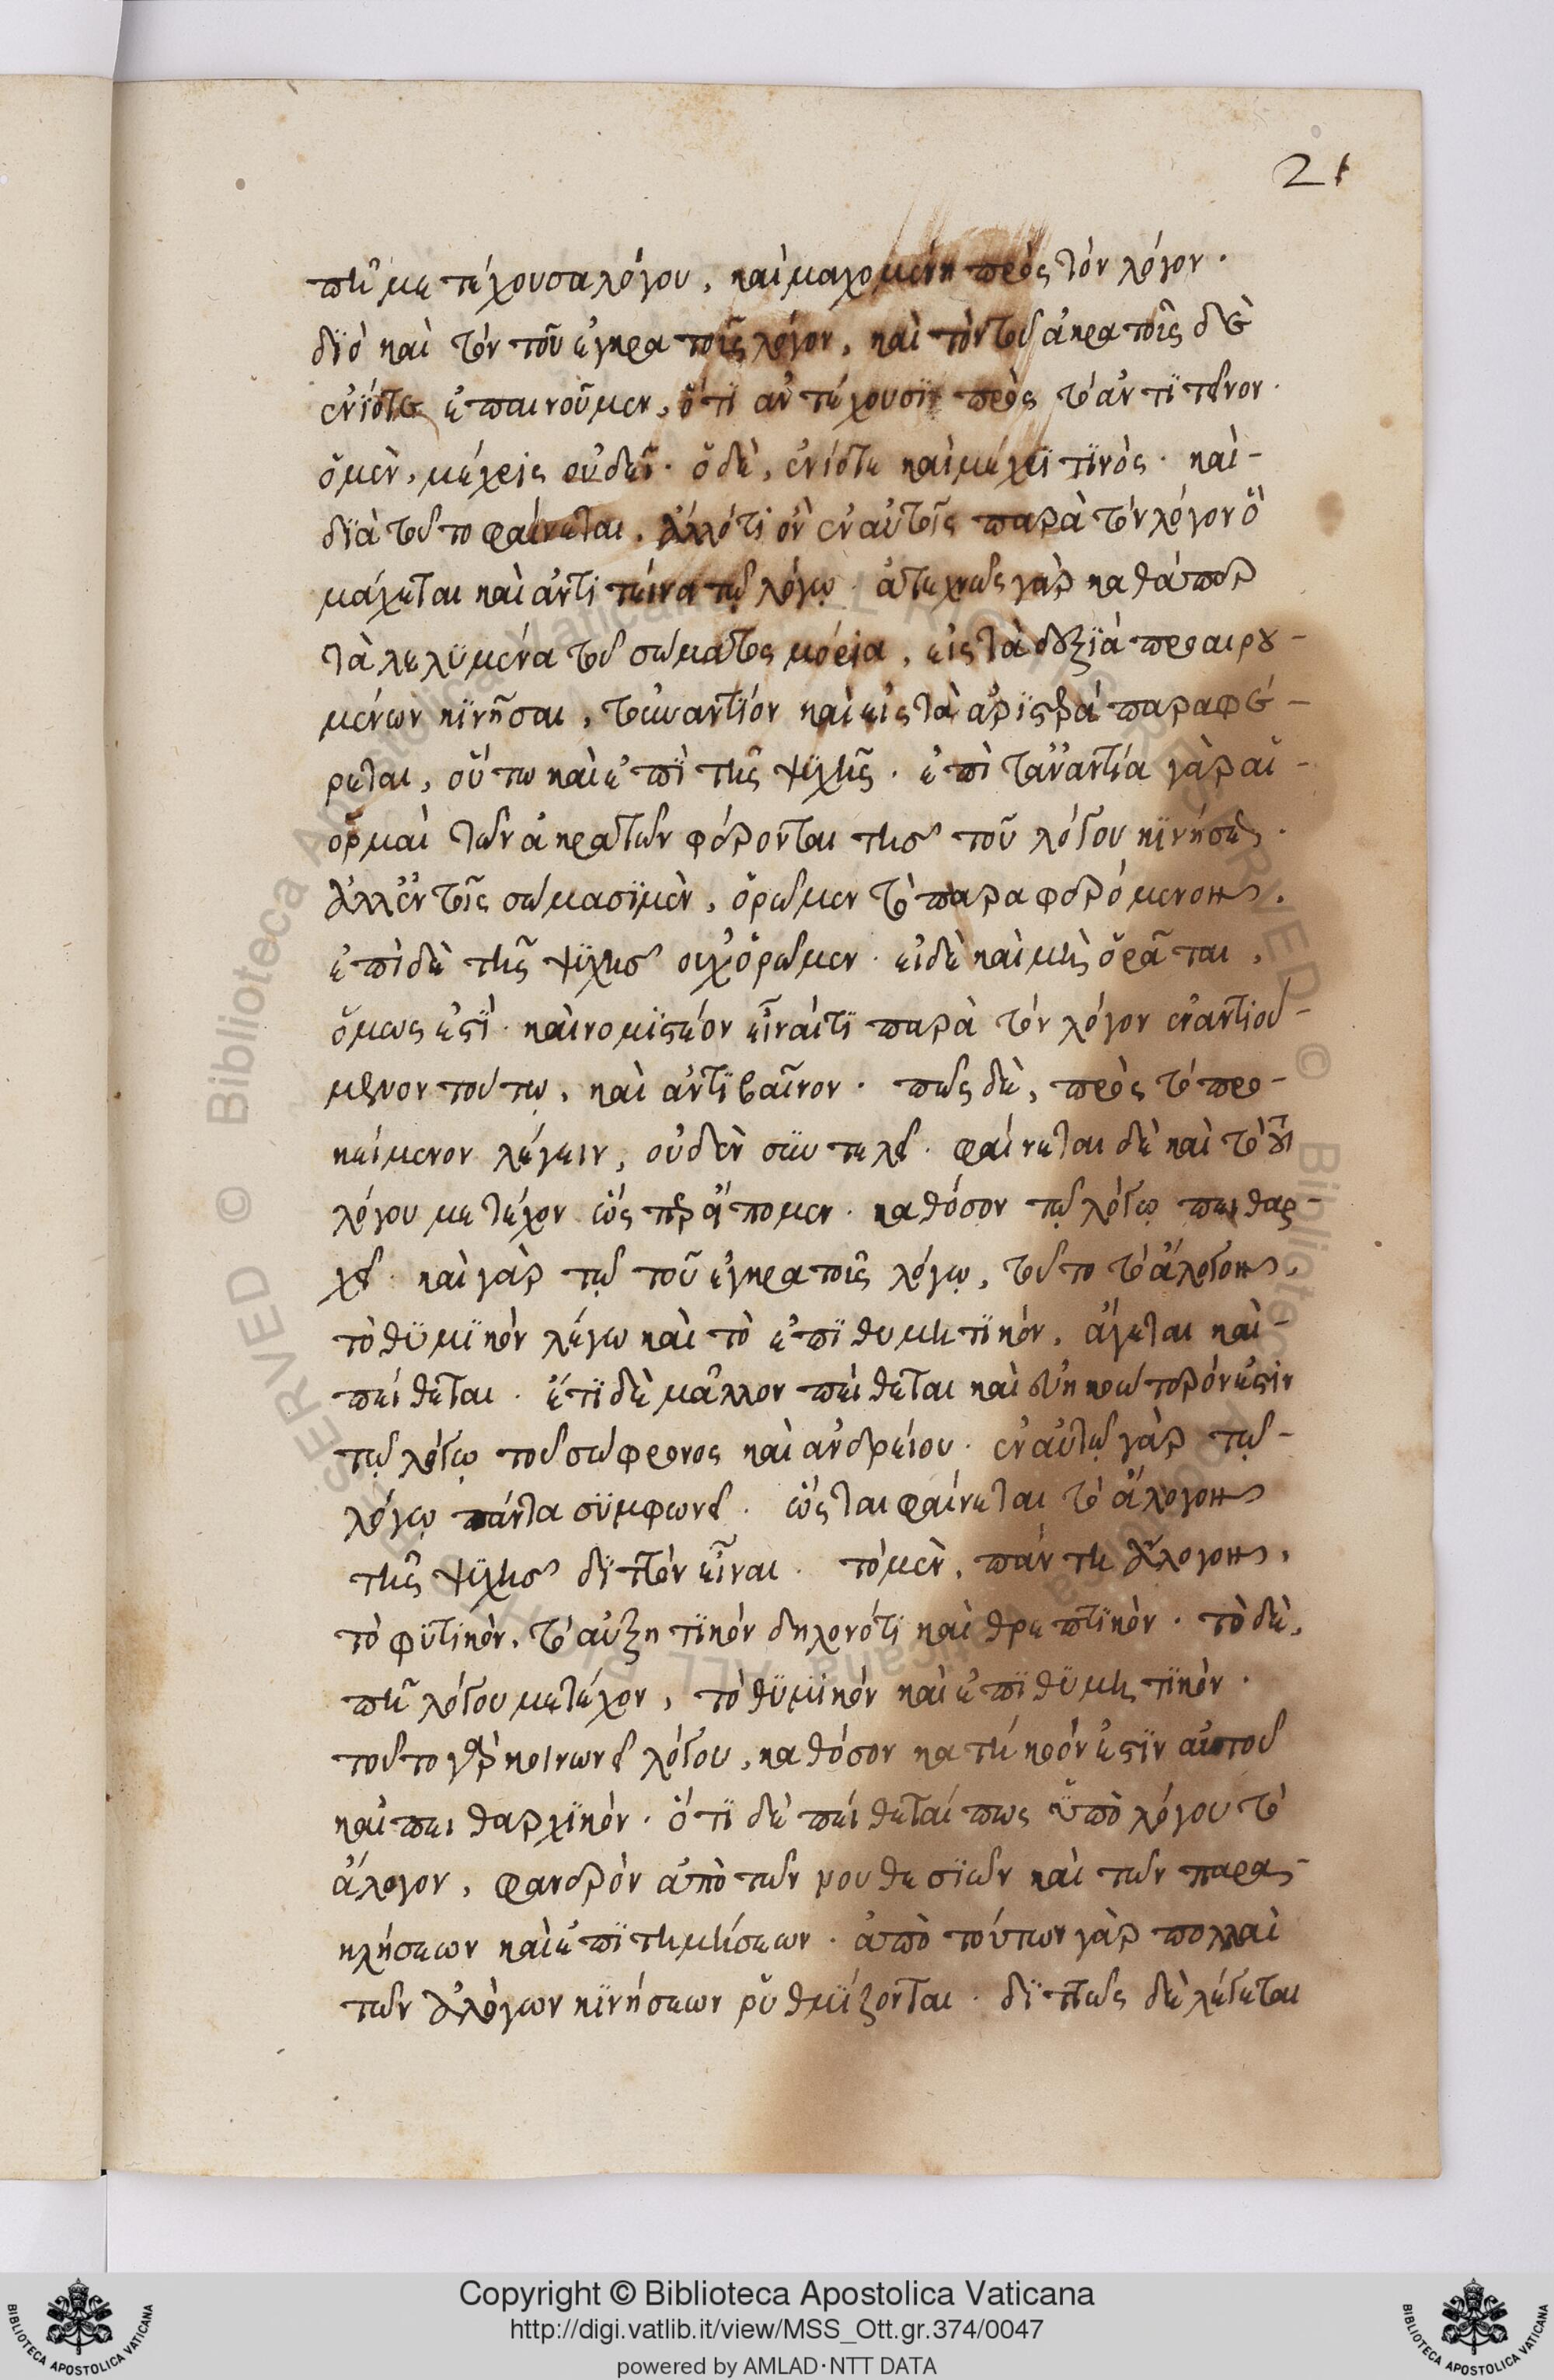 21
πῆ μετέχουσα λόγου, καὶ μαχομένη πρὸς τὸν λόγον.
διὸ καὶ τὸν τοῦ ἐγκρατοῖς λόγον, καὶ τὸν τοῦ ἀκρατοῖς δὲ
ἐνίοτε ἐπαινοῦμεν, ὅτι ἀντέχουσι πρὸς τὸ ἀντιτεῖνον.
ὁ μὲν, μέχρις οὐδεῖ. ὁ δὲ, ἐνίοτε καὶ μέχρι τινός. καὶ-
διὰ τοῦτο φαίνεται, ἄλλό τι ὂν ἐν αὐτοῖς παρὰ τὸν λόγον ὃ
μάχεται καὶ ἀντιτείνει τῷ λόγῳ. ἀτεχνῶς γὰρ καθάπερ
τὰ λελϋμένα τοῦ σώματος μόρια, εἰς τὰ δεξιὰ προαιρου-
μένων κινῆσαι, τοὐναντίον καὶ εἰς τὰ ἀριστερὰ παραφέ-
ρεται, οὕτω καὶ ἐπὶ τῆς ψϋχῆς. ἐπὶ τἀναντία γὰρ αἱ-
ὁρμαὶ τῶν ἀκρατῶν φέρονται τῆς τοῦ λόγου κινήσεως.
ἀλλ' ἐν τοῖς σώμασι μὲν, ὁρῶμεν τὸ παραφερόμενον,
ἐπὶ δὲ τῆς ψϋχῆς οὐχ ὁρῶμεν. εἰ δὲ καὶ μὴ ὁρᾶται,
ὅμως ἐστί. καὶ νομιστέον εἶναί τι παρὰ τὸν λόγον ἐναντιού-
μενον τούτῳ, καὶ ἀντιβαῖνον. πῶς δὲ, πρὸς τὸ προ-
κείμενον λέγειν, οὐδὲν σϋντελεῖ. φαίνεται δὲ καὶ τοῦτο
λόγου μετέχον ὥσπερ εἴπομεν. καθόσον τῷ λόγῳ πειθαρ-
χεῖ. καὶ γὰρ τῷ τοῦ ἐγκρατοῖς λόγῳ, τοῦτο τὸ ἄλογον,
τὸ θϋμικὸν λέγω καὶ τὸ ἐπιθυμητικόν, ἄγεται καὶ-
πείθεται. ἔτι δὲ μᾶλλον πείθεται καὶ εὐηκοώτερόν ἐστιν
τῷ λόγῳ τοῦ σώφρονος καὶ ἀνδρείου. ἐν αὐτῷ γὰρ τῷ-
λόγῳ πάντα σϋμφωνεῖ. ὥσται φαίνεται τὸ ἄλογον
τῆς ψϋχῆς διττὸν εἶναι. τὸ μὲν, πάντη ἄλογον,
τὸ φϋτικὸν, τὸ αὐξητικὸν δηλονότι καὶ θρεπτικόν. τὸ δὲ,
πῆ λόγου μετέχον, τὸ θϋμικὸν καὶ ἐπιθϋμητικόν.
τοῦτο γὰρ κοινωνεῖ λόγου, καθόσον κατήκοόν ἐστιν αὐτοῦ
καὶ πειθαρχικόν. ὅτι δὲ πείθεταί πως ὑπὸ λόγου τὸ
ἄλογον, φανερὸν ἀπὸ τῶν νουθεσιῶν καὶ τῶν παρα-
κλήσεων καὶ ἐπιτημήσεων. ἀπὸ τούτων γὰρ πολλαὶ
τῶν ἀλόγων κινήσεων ῥυθμίζονται. διττῶς δὲ λέγεται
Copyright © Biblioteca Apostolica Vaticana
http://digi.vatlib.it/view/MSS_Ott.gr.374/0047
powered by AMLAD·NTT DATA